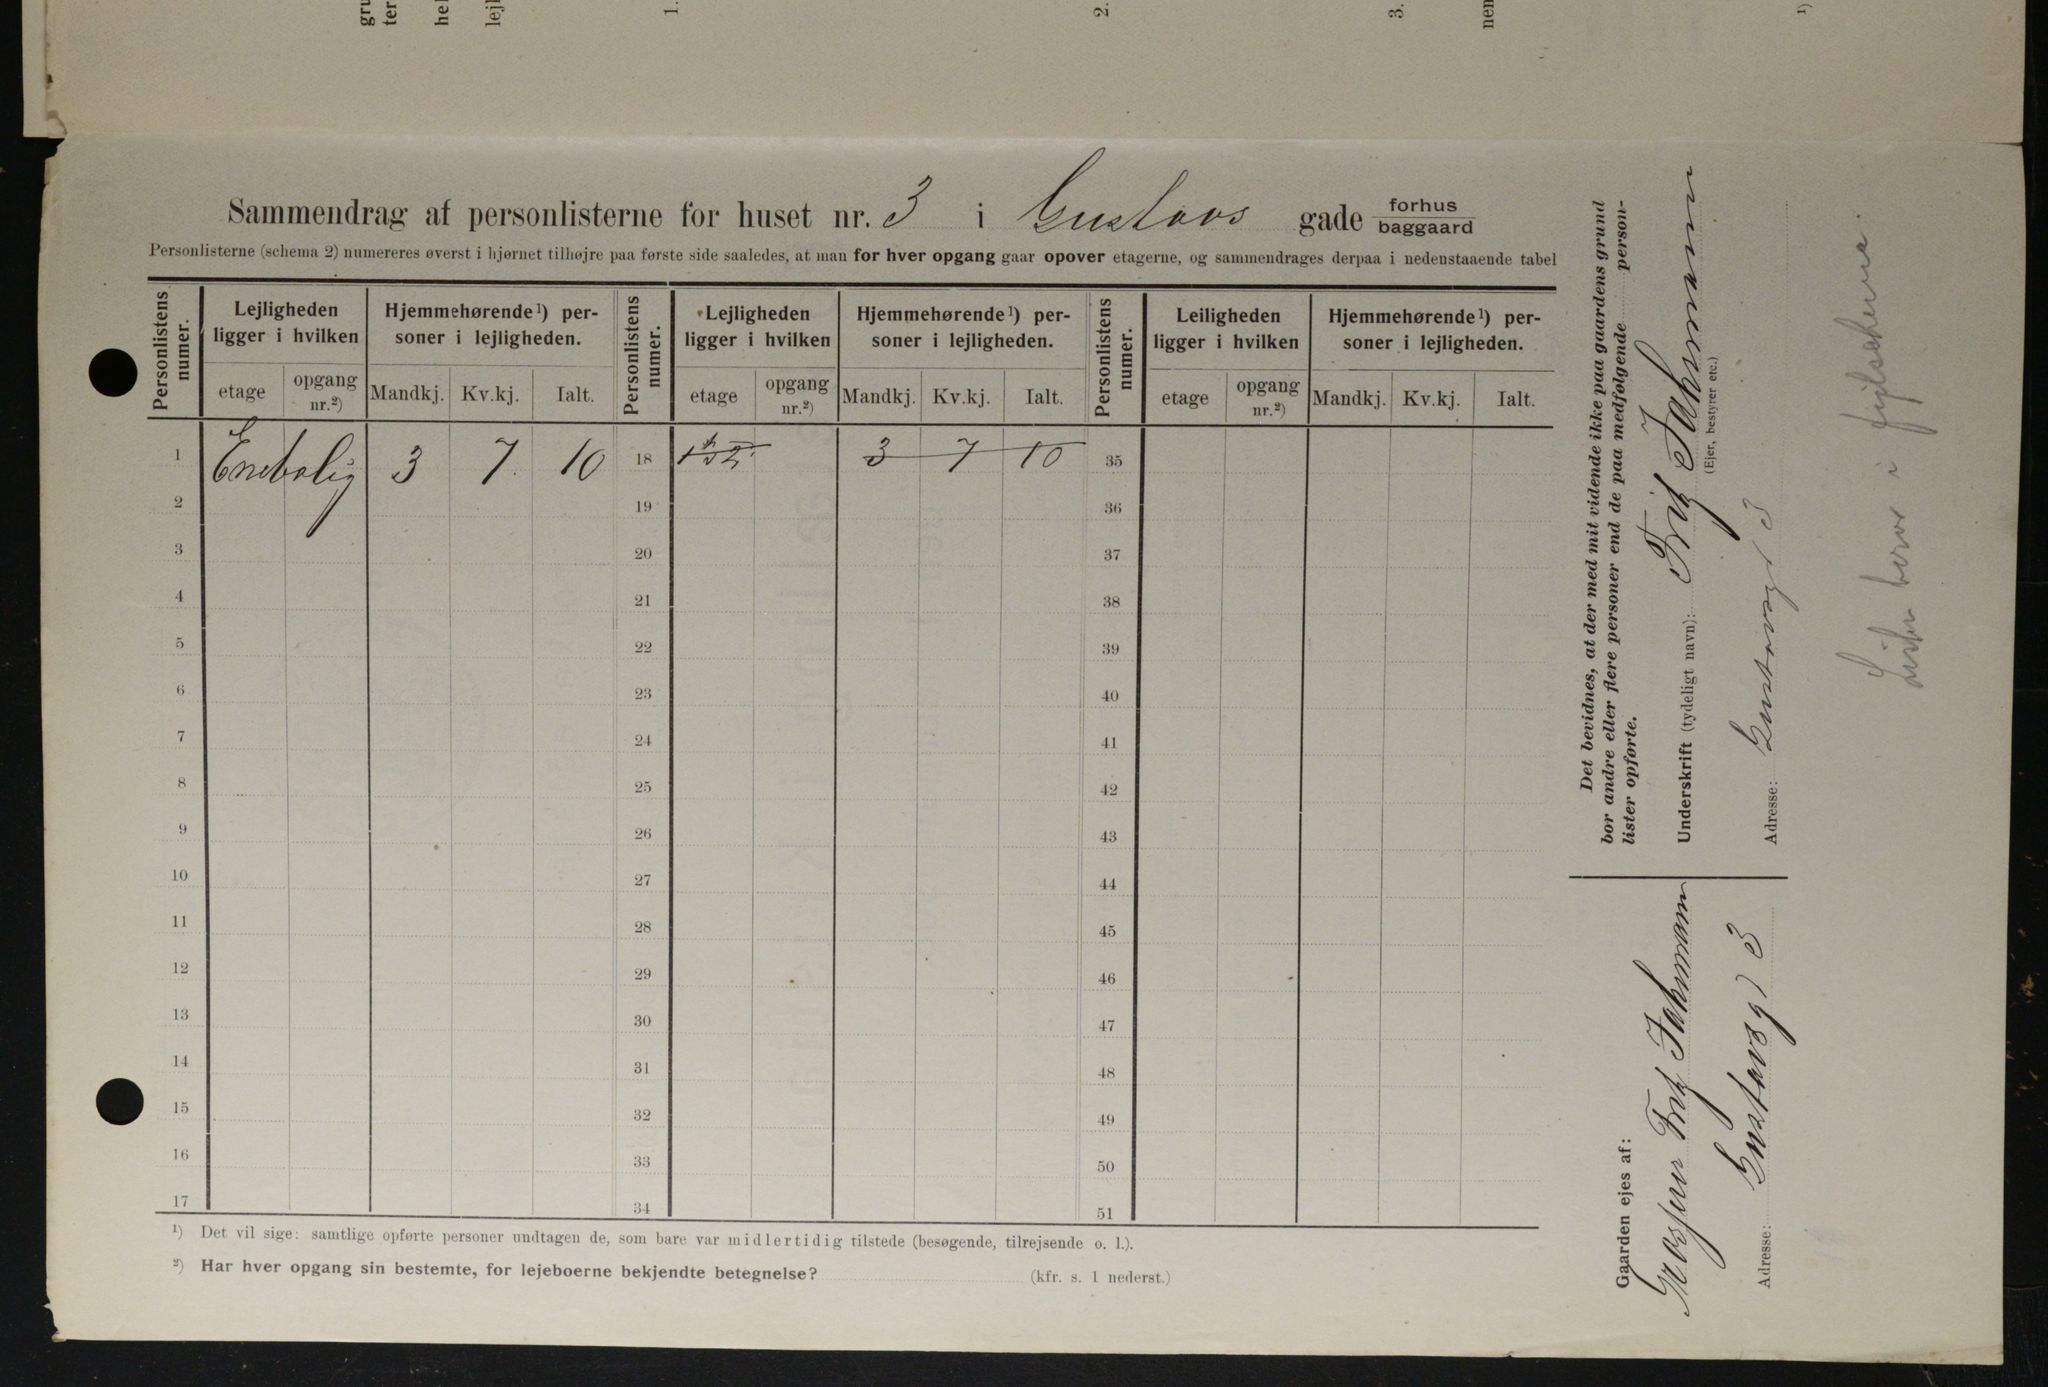 gru
ter
hel
lejl
1.
2.
3.
nen
1)
Sammendrag af personlisterne for huset nr. 3 i Gustavs gade forhus baggaard
Personlisterne (schema 2) numereres øverst i hjørnet tilhøjre paa første side saaledes, at man for hver opgang gaar opover etagerne, og sammendrages derpaa i nedenstaaende tabel
Personlistens numer. Lejligheden ligger i hvilken Hjemmehørende¹) personer i lejligheden. Personlistens numer. Lejligheden ligger i hvilken Hjemmehørende¹) personer i lejligheden. Personlistens numer. Leiligheden ligger i hvilken Hjemmehørende¹) personer i lejligheden.
etage opgang nr.²) Mandkj. Kv.kj. Ialt. etage opgang nr.²) Mandkj. Kv.kj. Ialt. etage opgang nr.²) Mandkj. Kv.kj. Ialt.
1 Enebolig 3 7 10 18 3 7 10 35
2 19 36
3 20 37
4 21 38
5 22 39
6 23 40
7 24 41
8 25 42
9 26 43
10 27 44
11 28 45
12 29 46
13 30 47
14 31 48
15 32 49
16 33 50
17 34 51
¹) Det vil sige: samtlige opførte personer undtagen de, som bare var midlertidig tilstede (besøgende, tilrejsende o. l.).
²) Har hver opgang sin bestemte, for lejeboerne bekjendte betegnelse? (kfr. s. 1 nederst.)
Det bevidnes, at der med mit vidende ikke paa gaardens grund
bor andre eller flere personer end de paa medfølgende person-
lister opførte.
Underskrift (tydeligt navn): Fritz Jahrmann
(Ejer, bestyrer etc.)
Adresse: Gustavsgd 3
Gaarden ejes af:
Grosserer Fritz Jahrmann
Adresse: Gustavsgd 3